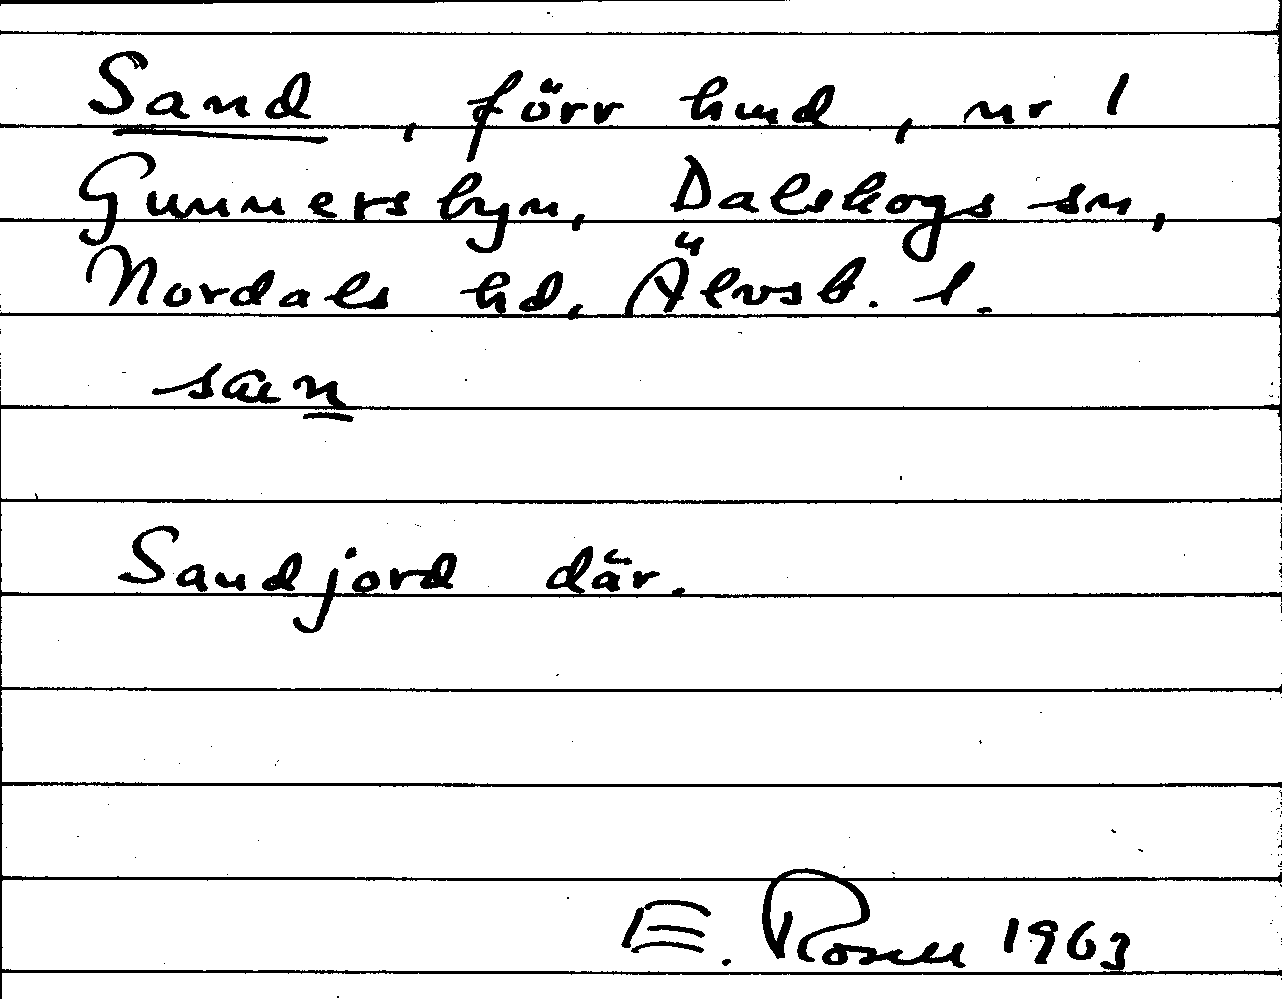 Sand, förr hmd, nr 1
Gunnersbyn, Dalskogs sn,
Nordals hd, Älvsb. l.
saen
Sandjord där.
E. Rosell 1963